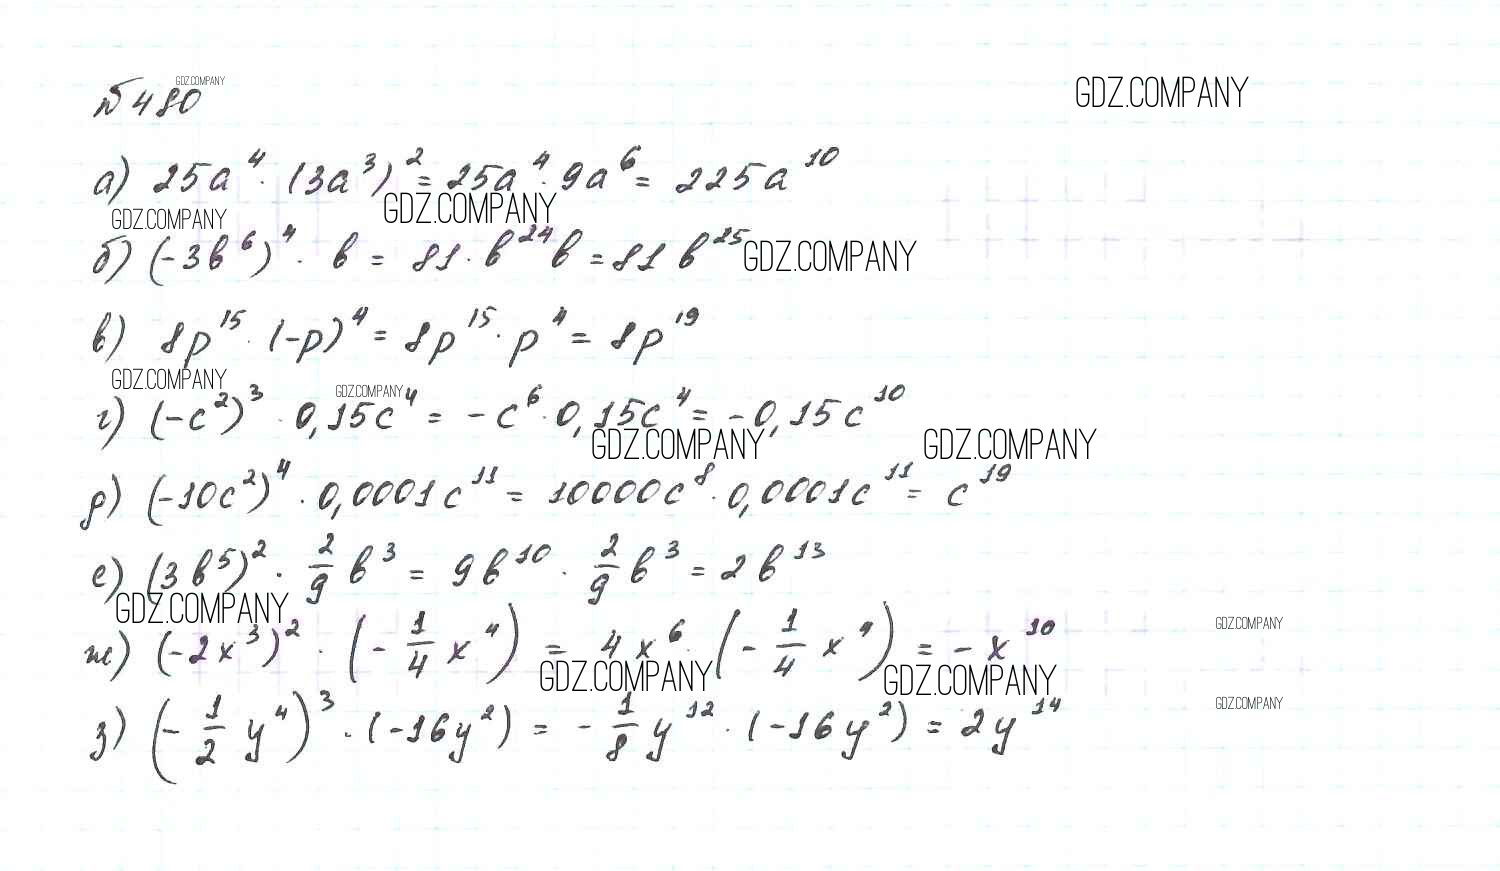 GDZ.COMPANY
№480
GDZ.COMPANY
а) 25a⁴ · (3a³)² = 25a⁴ · 9a⁶ = 225a¹⁰
GDZ.COMPANY GDZ.COMPANY
б) (-3b⁶)⁴ · b = 81 · b²⁴b = 81b²⁵
GDZ.COMPANY
в) 8p¹⁵ · (-p)⁴ = 8p¹⁵ · p⁴ = 8p¹⁹
GDZ.COMPANY GDZ.COMPANY
г) (-c²)³ · 0,15c⁴ = -c⁶ · 0,15c⁴ = -0,15c¹⁰
GDZ.COMPANY GDZ.COMPANY
д) (-10c²)⁴ · 0,0001c¹¹ = 10000c⁸ · 0,0001c¹¹ = c¹⁹
е) (3b⁵)² · 2/9 b³ = 9b¹⁰ · 2/9 b³ = 2b¹³
GDZ.COMPANY GDZ.COMPANY
ж) (-2x³)² · (-1/4 x⁴) = 4x⁶ · (-1/4 x⁴) = -x¹⁰
GDZ.COMPANY GDZ.COMPANY
GDZ.COMPANY
з) (-1/2 y⁴)³ · (-16y²) = -1/8 y¹² · (-16y²) = 2y¹⁴